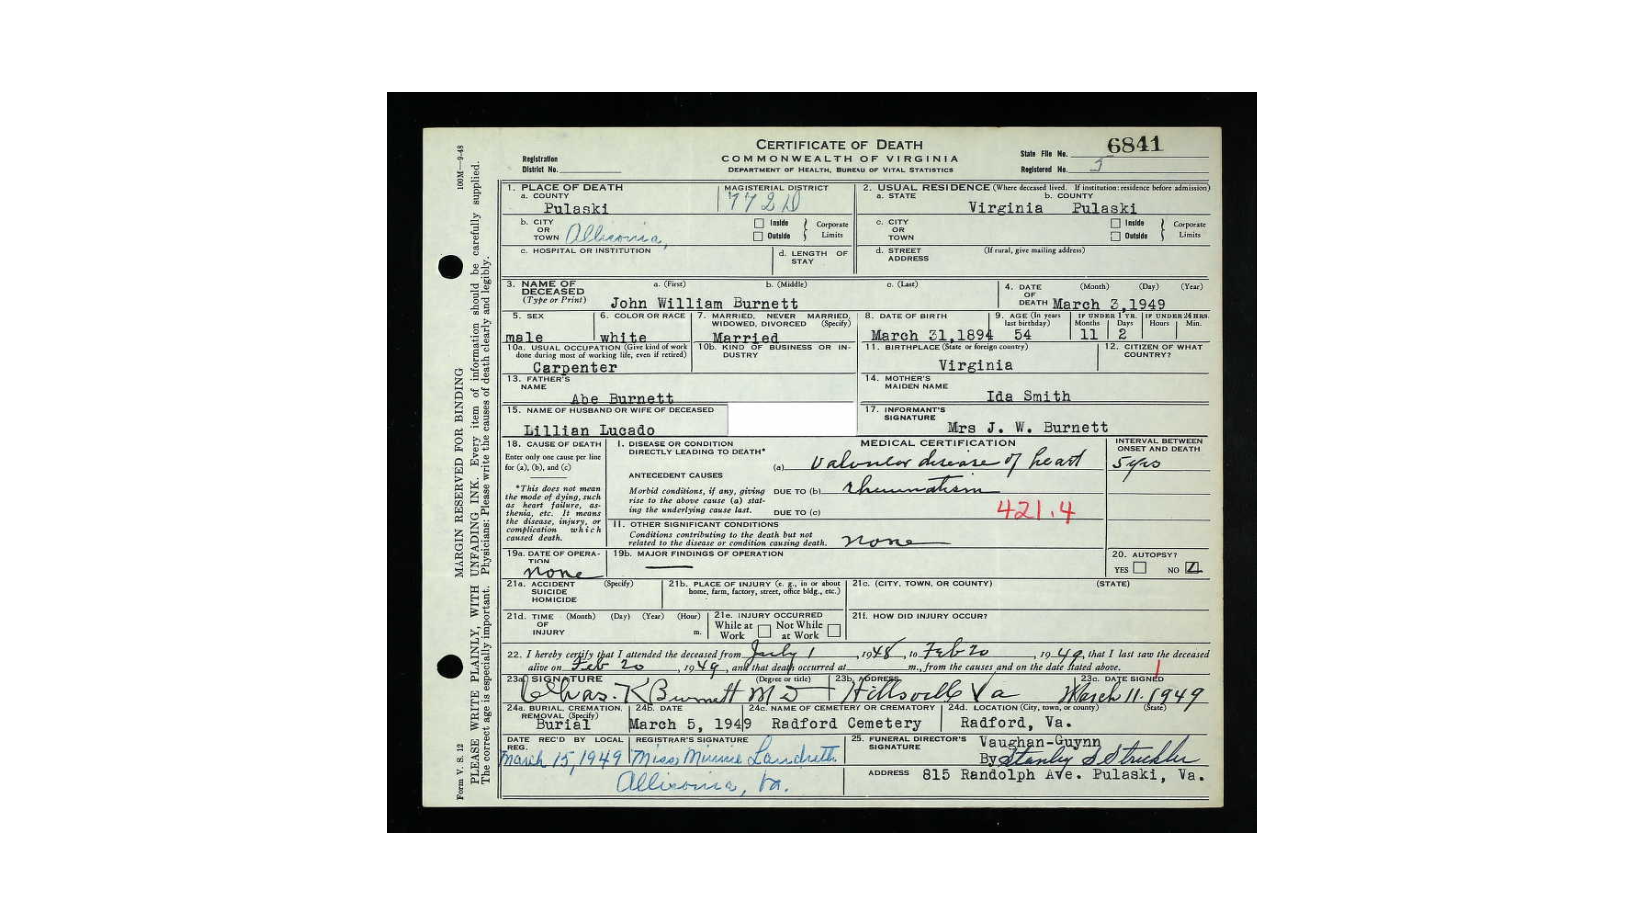 CERTIFICATE OF DEATH
COMMONWEALTH OF VIRGINIA
DEPARTMENT OF HEALTH, BUREAU OF VITAL STATISTICS
Registration
District No.
State File No. 6841
Registered No.
1. PLACE OF DEATH
a. COUNTY
Pulaski
MAGISTERIAL DISTRICT
772D
b. CITY
OR
TOWN Allisonia,
Inside
Outside
Corporate
Limits
c. HOSPITAL OR INSTITUTION
d. LENGTH OF
STAY
2. USUAL RESIDENCE (Where deceased lived. If institution: residence before admission)
a. STATE b. COUNTY
Virginia Pulaski
c. CITY
OR
TOWN
Inside
Outside
Corporate
Limits
d. STREET (If rural, give mailing address)
ADDRESS
3. NAME OF
DECEASED
(Type or Print)
a. (First) b. (Middle) c. (Last)
John William Burnett
4. DATE (Month) (Day) (Year)
OF
DEATH March 3,1949
5. SEX
male
6. COLOR OR RACE
white
7. MARRIED, NEVER MARRIED,
WIDOWED, DIVORCED (Specify)
Married
8. DATE OF BIRTH
March 31,1894
9. AGE (In years
last birthday)
54
IF UNDER 1 YR.
Months Days
11 2
IF UNDER 24 HRS.
Hours Min.
10a. USUAL OCCUPATION (Give kind of work
done during most of working life, even if retired)
Carpenter
10b. KIND OF BUSINESS OR IN-
DUSTRY
11. BIRTHPLACE (State or foreign country)
Virginia
12. CITIZEN OF WHAT
COUNTRY?
13. FATHER'S
NAME
Abe Burnett
14. MOTHER'S
MAIDEN NAME
Ida Smith
15. NAME OF HUSBAND OR WIFE OF DECEASED
Lillian Lucado
17. INFORMANT'S
SIGNATURE
Mrs J. W. Burnett
18. CAUSE OF DEATH
Enter only one cause per line
for (a), (b), and (c)
*This does not mean
the mode of dying, such
as heart failure, as-
thenia, etc. It means
the disease, injury, or
complication which
caused death.
MEDICAL CERTIFICATION
I. DISEASE OR CONDITION
DIRECTLY LEADING TO DEATH*
(a) Valvular disease of heart
ANTECEDENT CAUSES
Morbid conditions, if any, giving
rise to the above cause (a) stat-
ing the underlying cause last.
DUE TO (b) rheumatism
DUE TO (c)
421.4
INTERVAL BETWEEN
ONSET AND DEATH
5 yrs
II. OTHER SIGNIFICANT CONDITIONS
Conditions contributing to the death but not
related to the disease or condition causing death. none
19a. DATE OF OPERA-
TION
none
19b. MAJOR FINDINGS OF OPERATION
20. AUTOPSY?
YES NO
21a. ACCIDENT (Specify)
SUICIDE
HOMICIDE
21b. PLACE OF INJURY (e. g., in or about
home, farm, factory, street, office bldg., etc.)
21c. (CITY, TOWN, OR COUNTY) (STATE)
21d. TIME (Month) (Day) (Year) (Hour)
OF
INJURY m.
21e. INJURY OCCURRED
While at Not While
Work at Work
21f. HOW DID INJURY OCCUR?
22. I hereby certify that I attended the deceased from July 1, 1948, to Feb 20, 1949, that I last saw the deceased
alive on Feb 20, 1949, and that death occurred at m., from the causes and on the date stated above.
23a. SIGNATURE (Degree or title)
Chas. K Burnett M D
23b. ADDRESS
Hillsville Va
23c. DATE SIGNED
March 11, 1949
24a. BURIAL, CREMATION,
REMOVAL (Specify)
Burial
24b. DATE
March 5, 1949
24c. NAME OF CEMETERY OR CREMATORY
Radford Cemetery
24d. LOCATION (City, town, or county) (State)
Radford, Va.
DATE REC'D BY LOCAL
REG.
March 15, 1949
REGISTRAR'S SIGNATURE
Miss Minnie Landreth
Allisonia, Va.
25. FUNERAL DIRECTOR'S
SIGNATURE
Vaughan-Guynn
By Stanley S Strickler
ADDRESS 815 Randolph Ave. Pulaski, Va.
100M—9-48
MARGIN RESERVED FOR BINDING
PLEASE WRITE PLAINLY, WITH UNFADING INK. Every item of information should be carefully supplied.
The correct age is especially important. Physicians: Please write the causes of death clearly and legibly.
Form V. S. 12